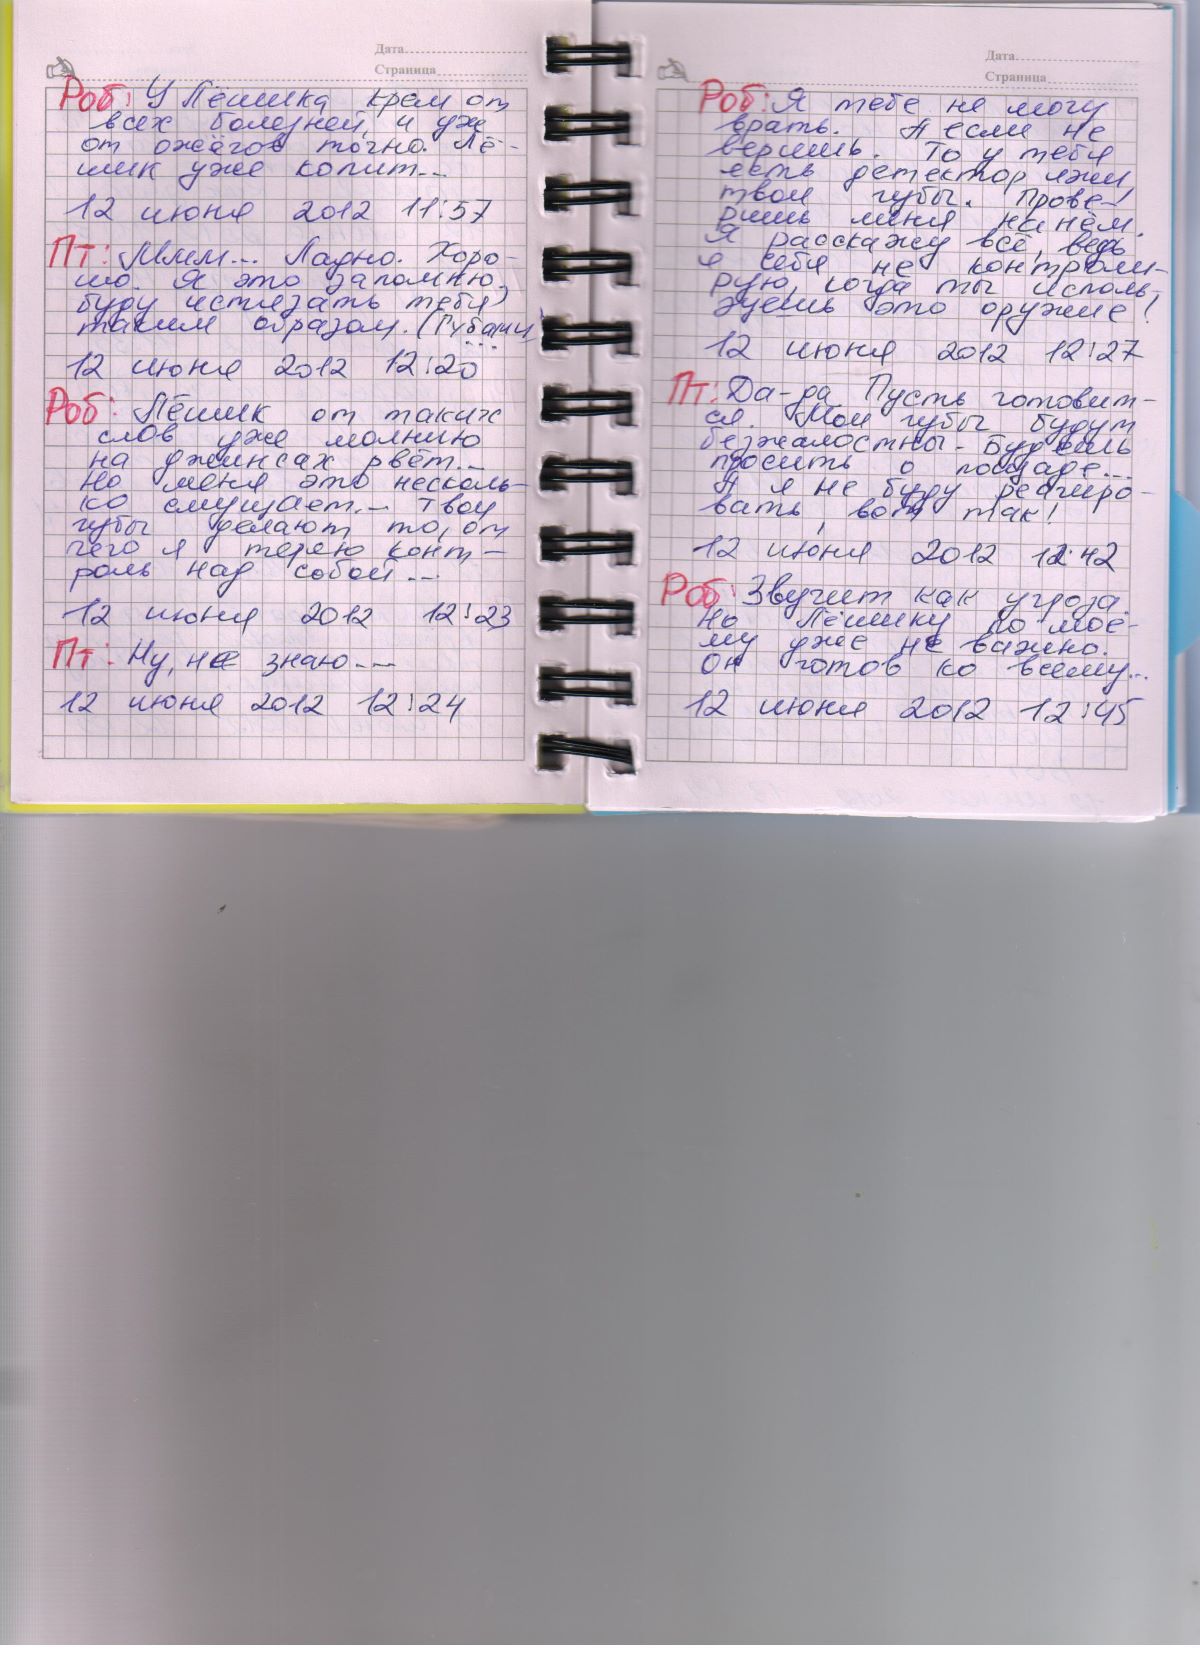 Дата
Страница
Роб: У Лёшика крем от
всех болезней, и уж
от ожёгов точно. Лё-
шик уже копит...
12 июня 2012 11:57
Пт: Ммм... Ладно. Хоро-
шо. Я это запомню,
буду истязать тебя
таким образом. (Губами)
...
12 июня 2012 12:20
Роб: Лёшик от таких
слов уже молнию
на джинсах рвёт...
Но меня это несколь-
ко смущает... твои
губы делают то, от
чего я теряю конт-
роль над собой...
12 июня 2012 12:23
Пт: Ну, не знаю...
12 июня 2012 12:24
Дата
Страница
Роб: Я тебе не могу
врать. А если не
веришь. То у тебя
есть детектор лжи
твои губы. Прове-
ришь меня на нём.
Я расскажу всё, ведь
я себя не контроли-
рую, когда ты исполь-
зуешь это оружие!
12 июня 2012 12:27
Пт: Да-да Пусть готовит-
ся. Мои губы будут
безжалостны. Будешь
просить о пощаде...
А я не буду реагиро-
вать, вот так!
12 июня 2012 12:42
Роб: Звучит как угроза.
Но Лёшику по-моё-
му уже не важно.
Он готов ко всему...
12 июня 2012 12:45